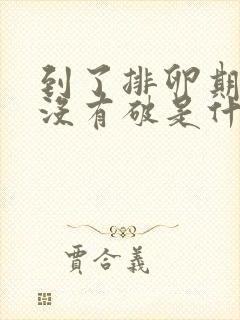 到了排卵期
沒有破是什
賈合義